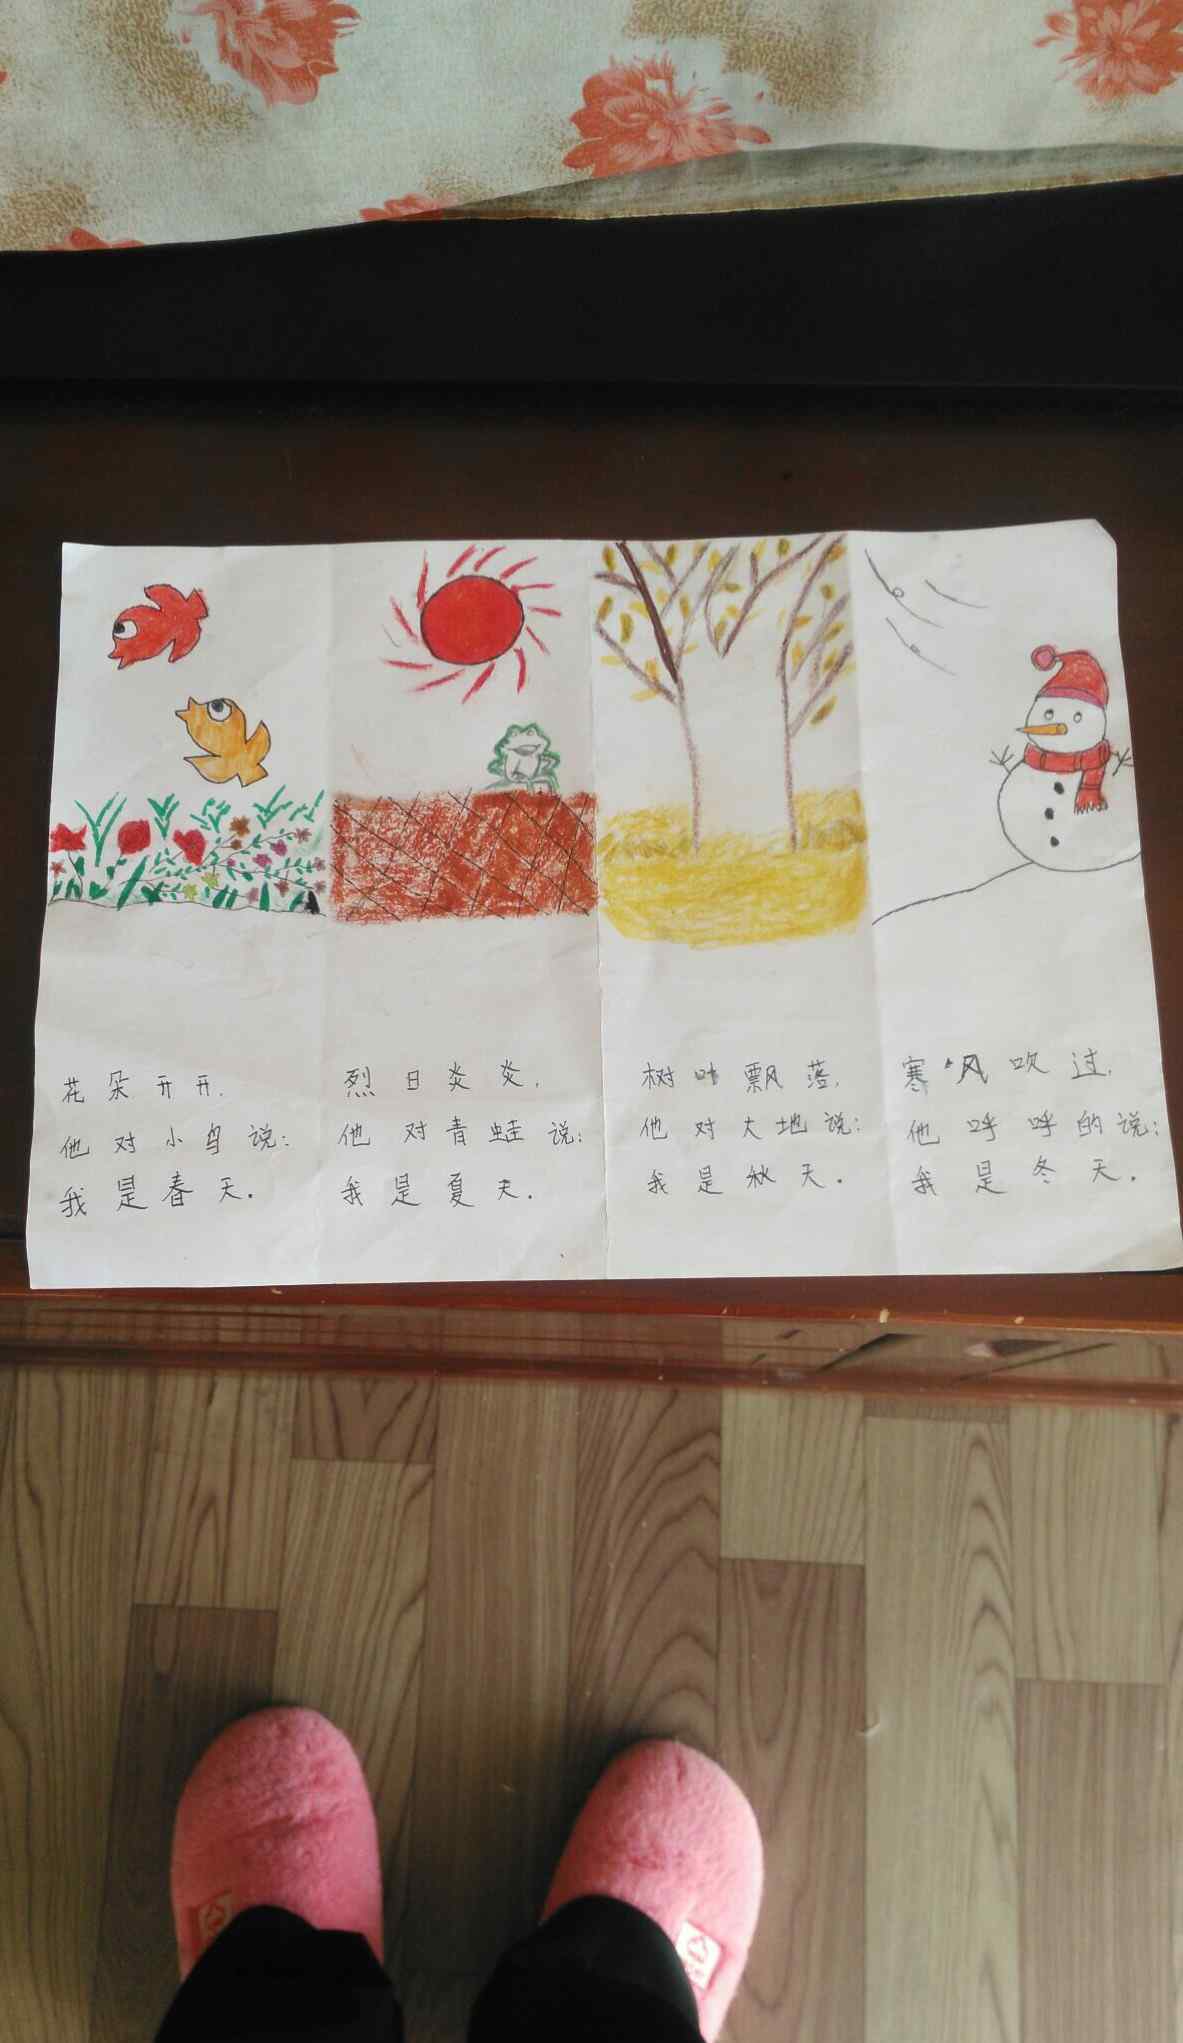 花朵开开,
他对小鸟说:
我是春天.
烈日炎炎,
他对青蛙说:
我是夏天.
树叶飘落,
他对大地说:
我是秋天.
寒风吹过,
他呼呼的说:
我是冬天.